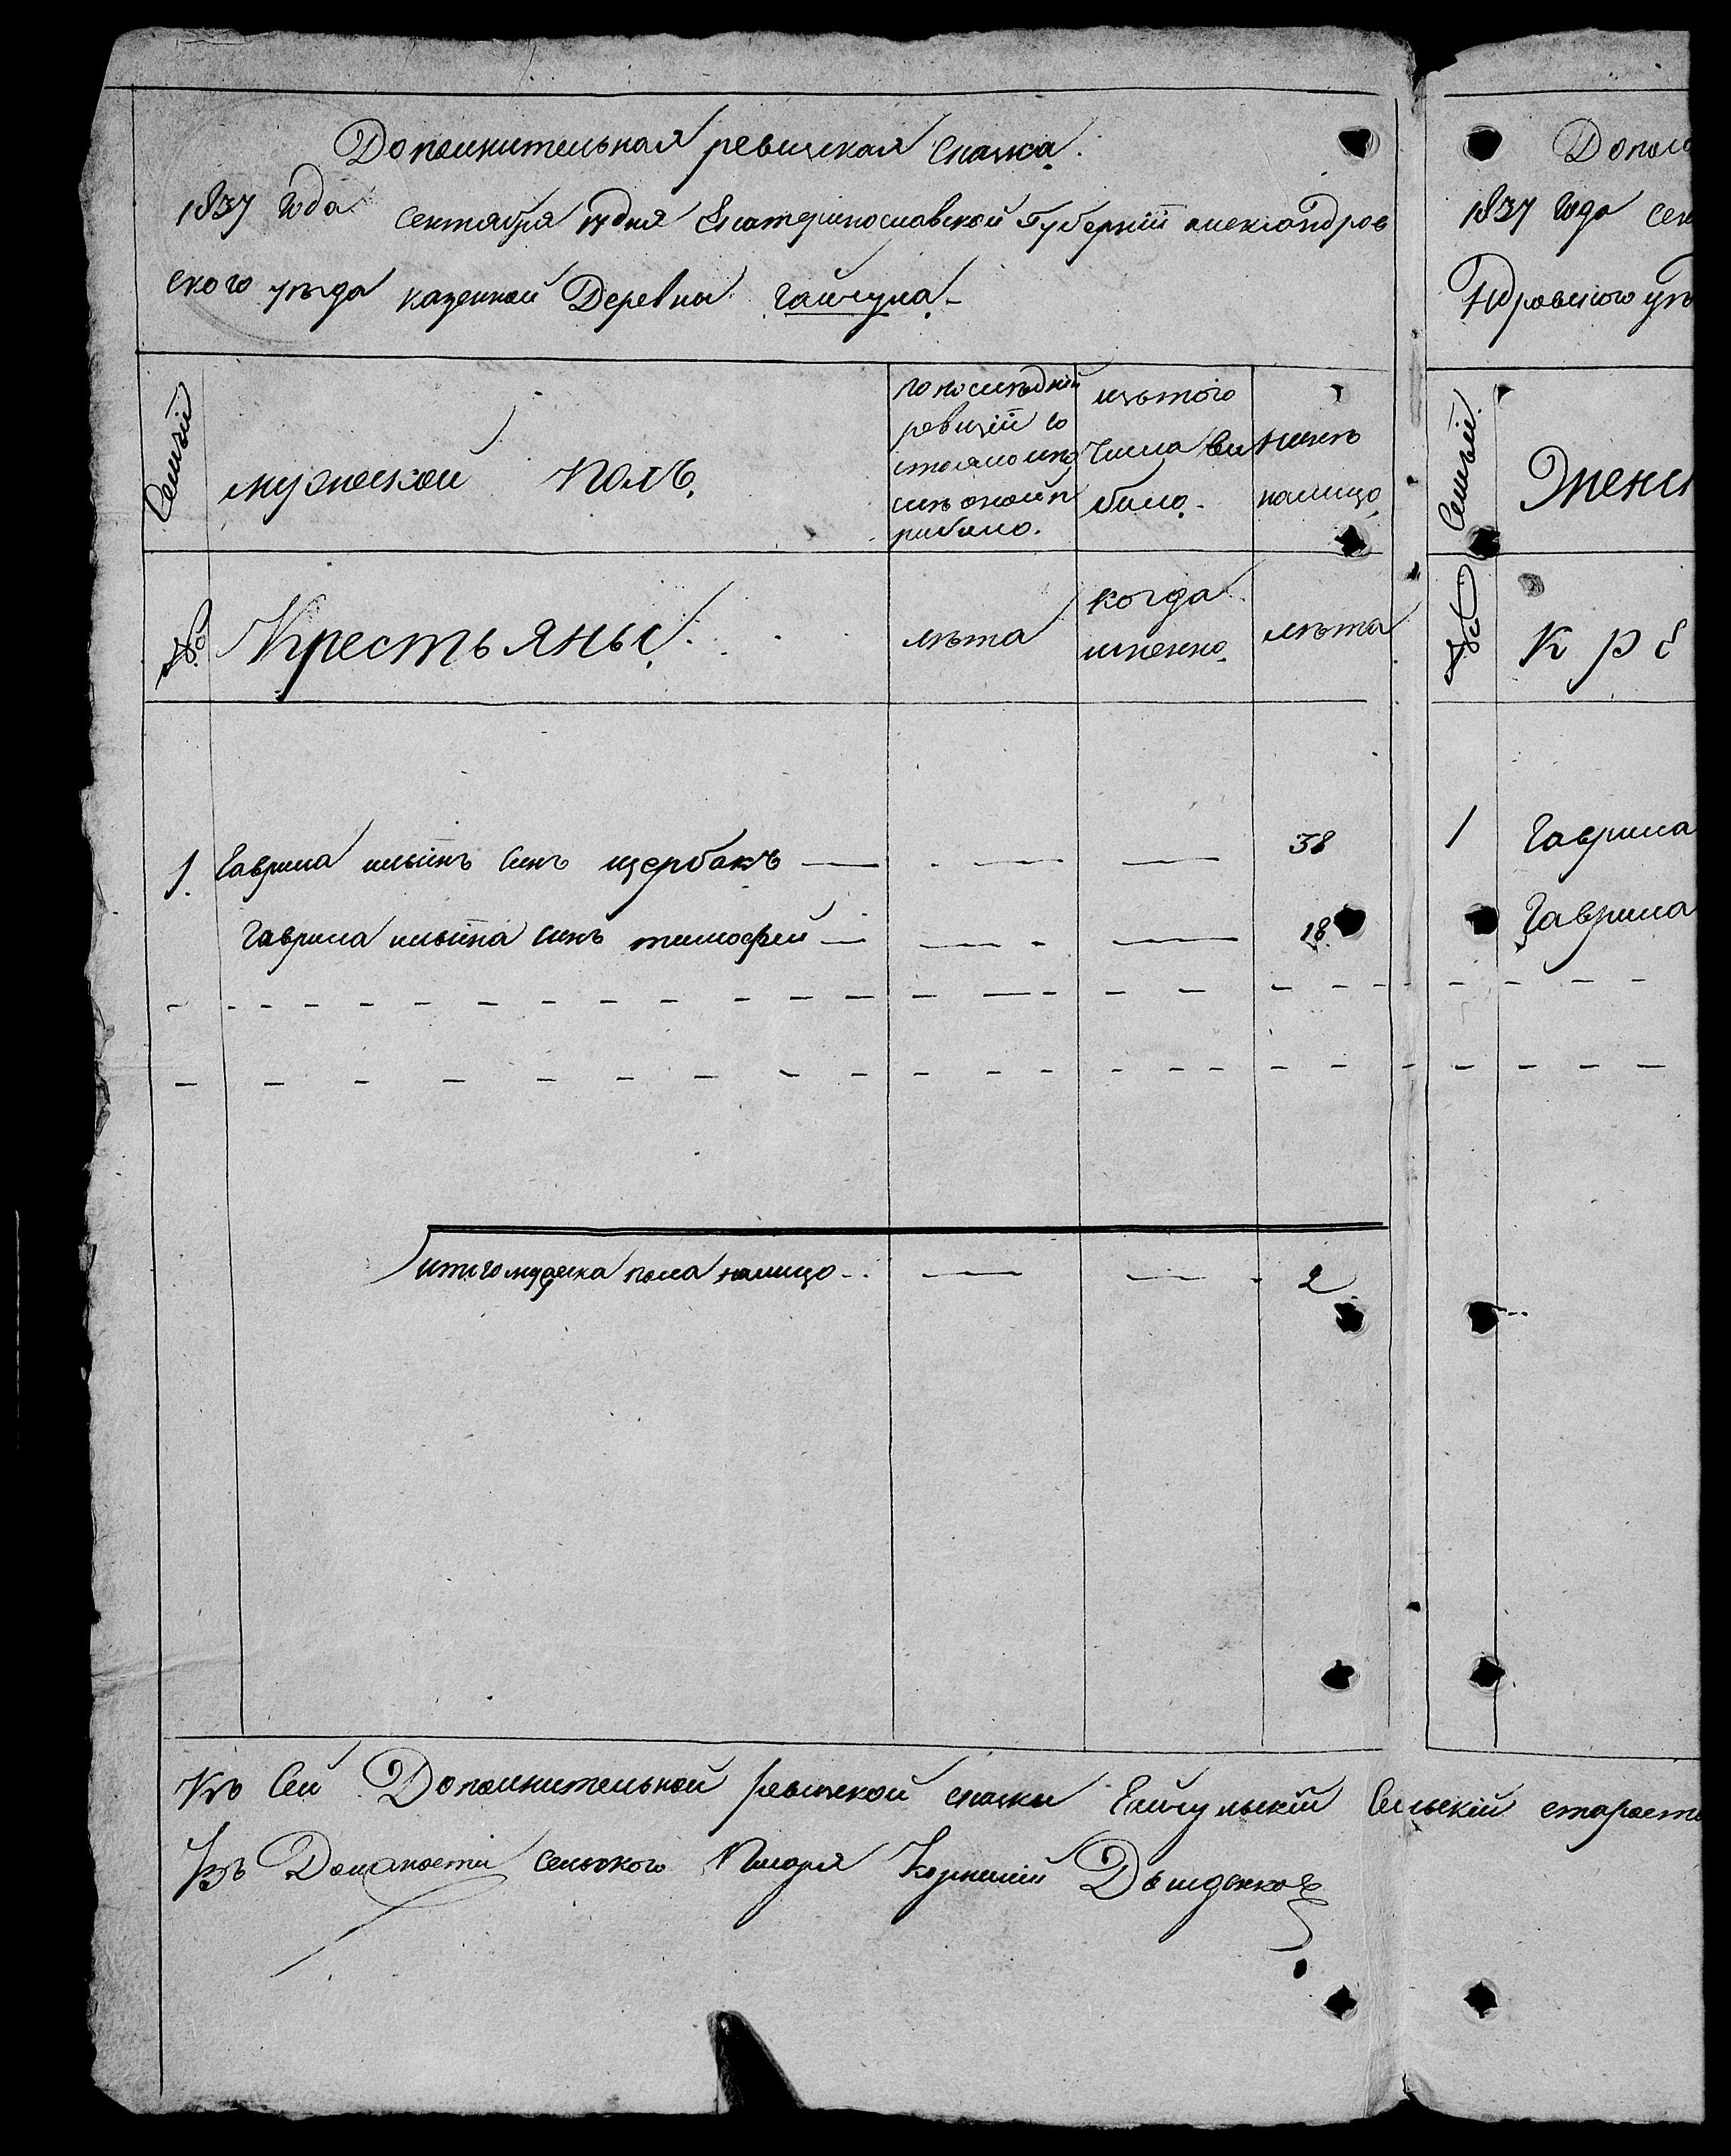 Дополнительная ревизская сказка.
1837 года сентября 17 дня Екатеринославской Губернїй александров
ского уезда казенной Деревны гайчула.
Семъй
мужеской Полъ.
по последней
ревизїй со
стояло ипо
сль оной п
рибыло.
изътого
числа вы
было.
ныне
налицо
№
Крестьяны.
лета
когда
именно.
лета
1. Гаврила ильинъ синъ щербакъ 38
Гаврила ильина синъ тимофей 18
итого мужеска пола налицо 2
Къ Сей Дополнительной ревизской сказки Гайчульскїй Сельскїй старост
Въ Должности сельского Писаря Корнилий
Допол
1837 года сен
ндровского уъ
Семъй.
Женс
№
К р е
1 Гаврила
Гаврила